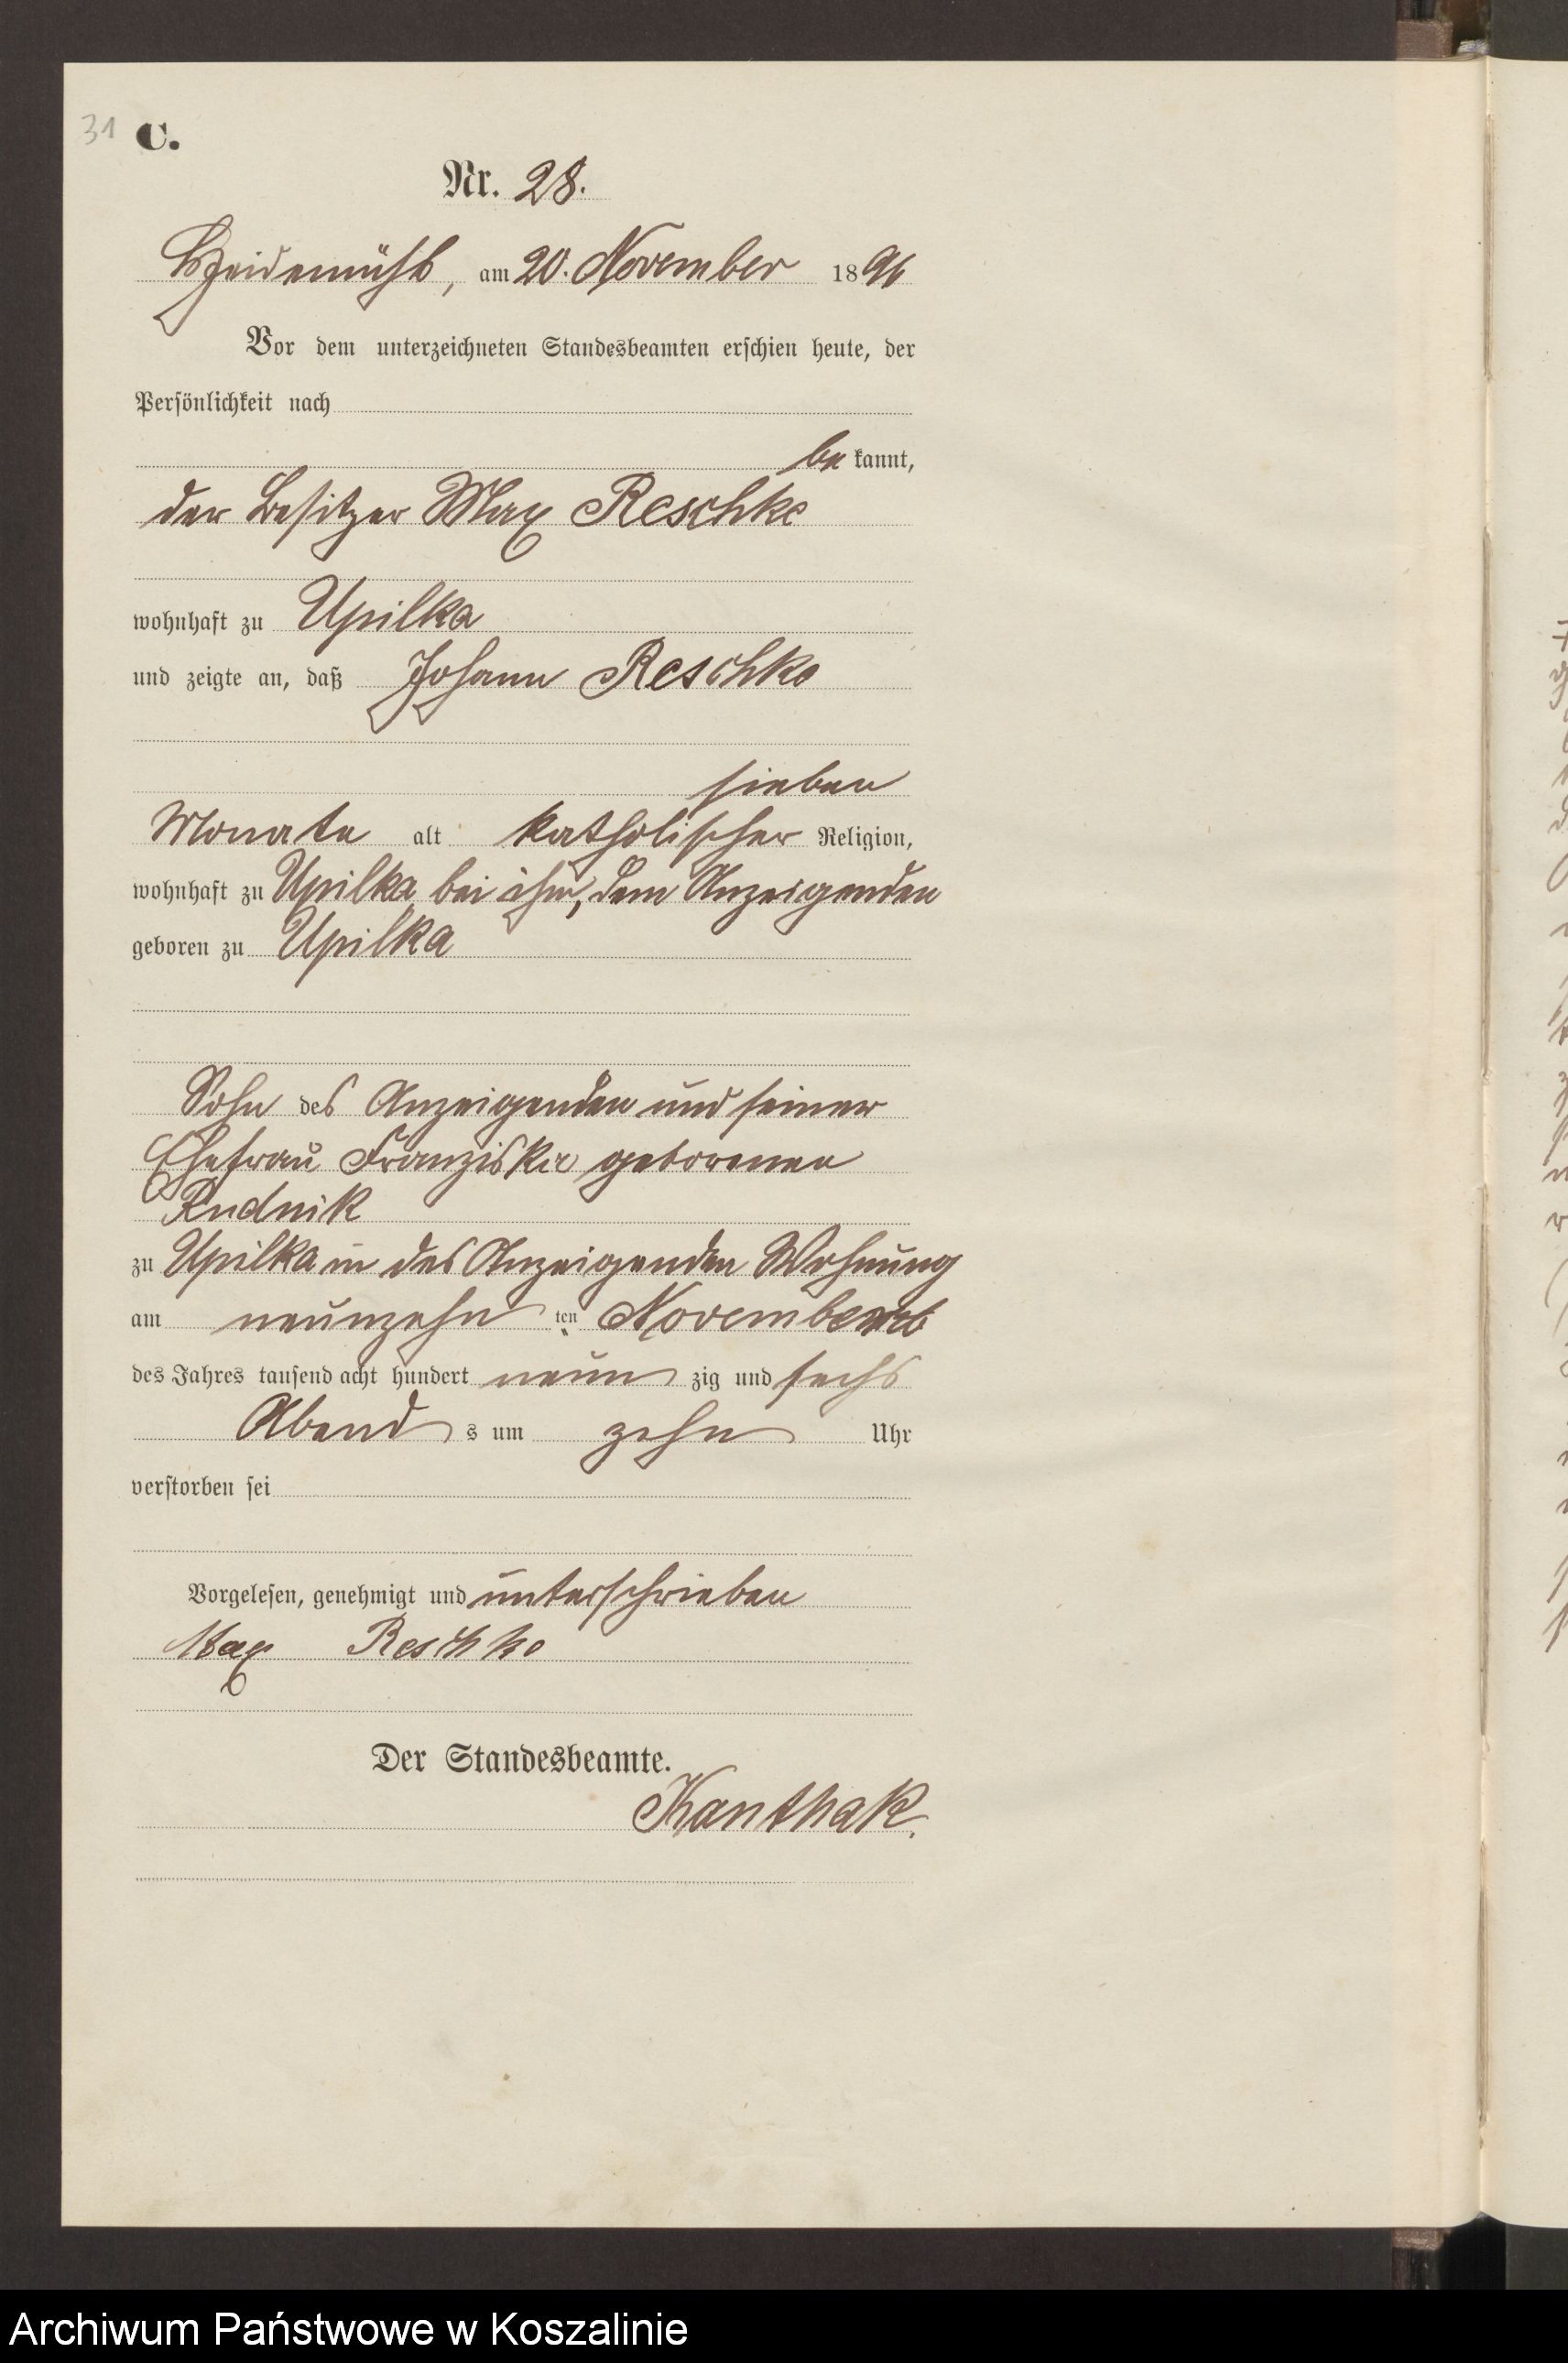 31 C.
Nr. 28.
Heidemühl, am 20. November 1896
Vor dem unterzeichneten Standesbeamten erschien heute, der
Persönlichkeit nach
be kannt,
der Besitzer Max Reschke
wohnhaft zu Upilka
und zeigte an, daß Johann Reschke
sieben
Monate alt katholischer Religion,
wohnhaft zu Upilka bei ihm, dem Anzeigenden
geboren zu Upilka
Sohn des Anzeigenden und seiner
Ehefrau Franziska geborenen
Rudnik
zu Upilka in des Anzeigenden Wohnung
am neunzehn ten November
des Jahres tausend acht hundert neun zig und sechs
Abend s um zehn Uhr
verstorben sei
Vorgelesen, genehmigt und unterschrieben
Max Reschke
Der Standesbeamte.
Kanthak.
Archiwum Państwowe w Koszalinie